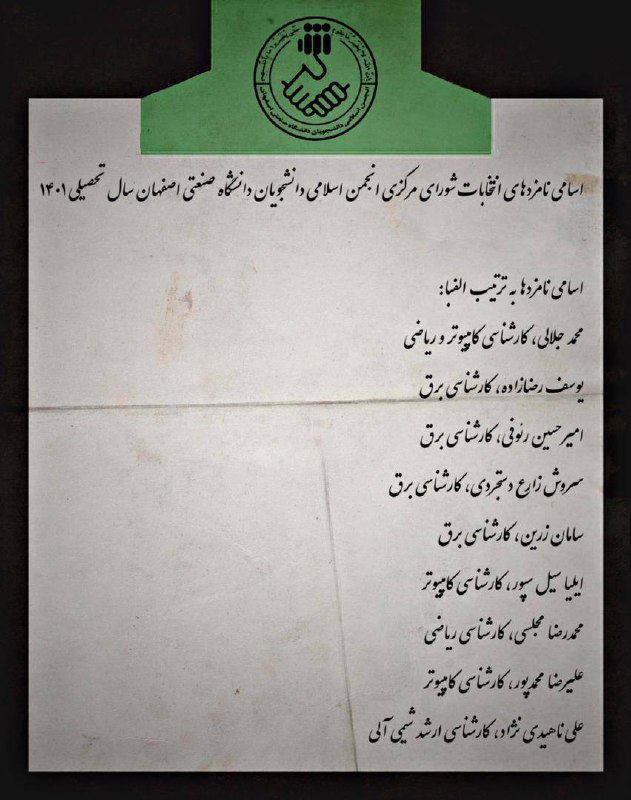 اسامی نامزدهای انتخابات شورای مرکزی انجمن اسلامی دانشجویان دانشگاه صنعتی اصفهان سال تحصیلی ۱۴۰۱
اسامی نامزدها به ترتیب الفبا:
محمد جلالی، کارشناسی کامپیوتر و ریاضی
یوسف رضازاده، کارشناسی برق
امیرحسین رئوفی، کارشناسی برق
سروش زارع دستجردی، کارشناسی برق
سامان زرین، کارشناسی برق
ایلیا سیل سپور، کارشناسی کامپیوتر
محمدرضا مجلسی، کارشناسی ریاضی
علیرضا محمدپور، کارشناسی کامپیوتر
علی ناهیدی نژاد، کارشناسی ارشد شیمی آلی